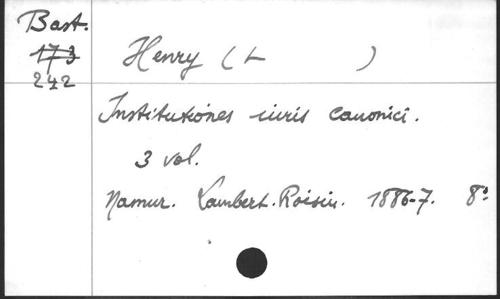 Bast.
173
242
Henry (L )
Institutiones iuris canonici.
3 vol.
Namur. Lambert-Roisin. 1886-7. 8º